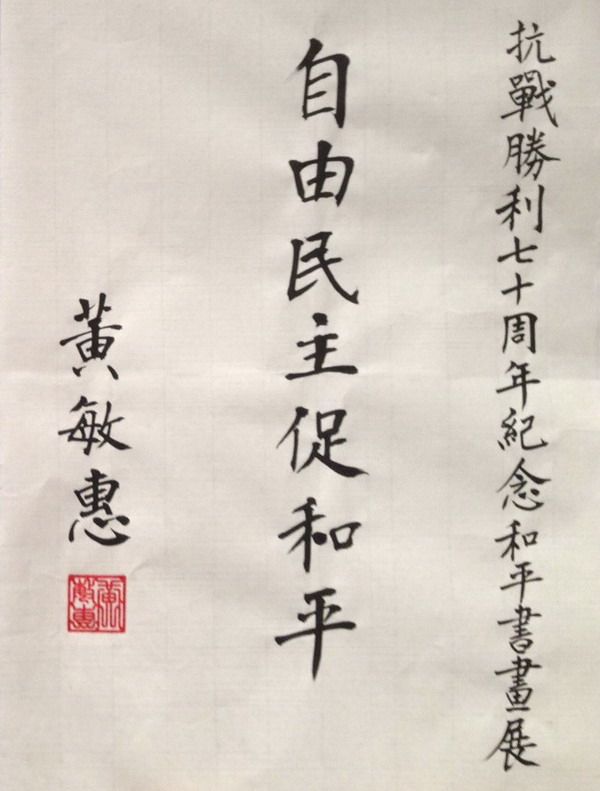 抗戰勝利七十周年紀念和平書畫展
自由民主促和平
黃敏惠
黃敏惠